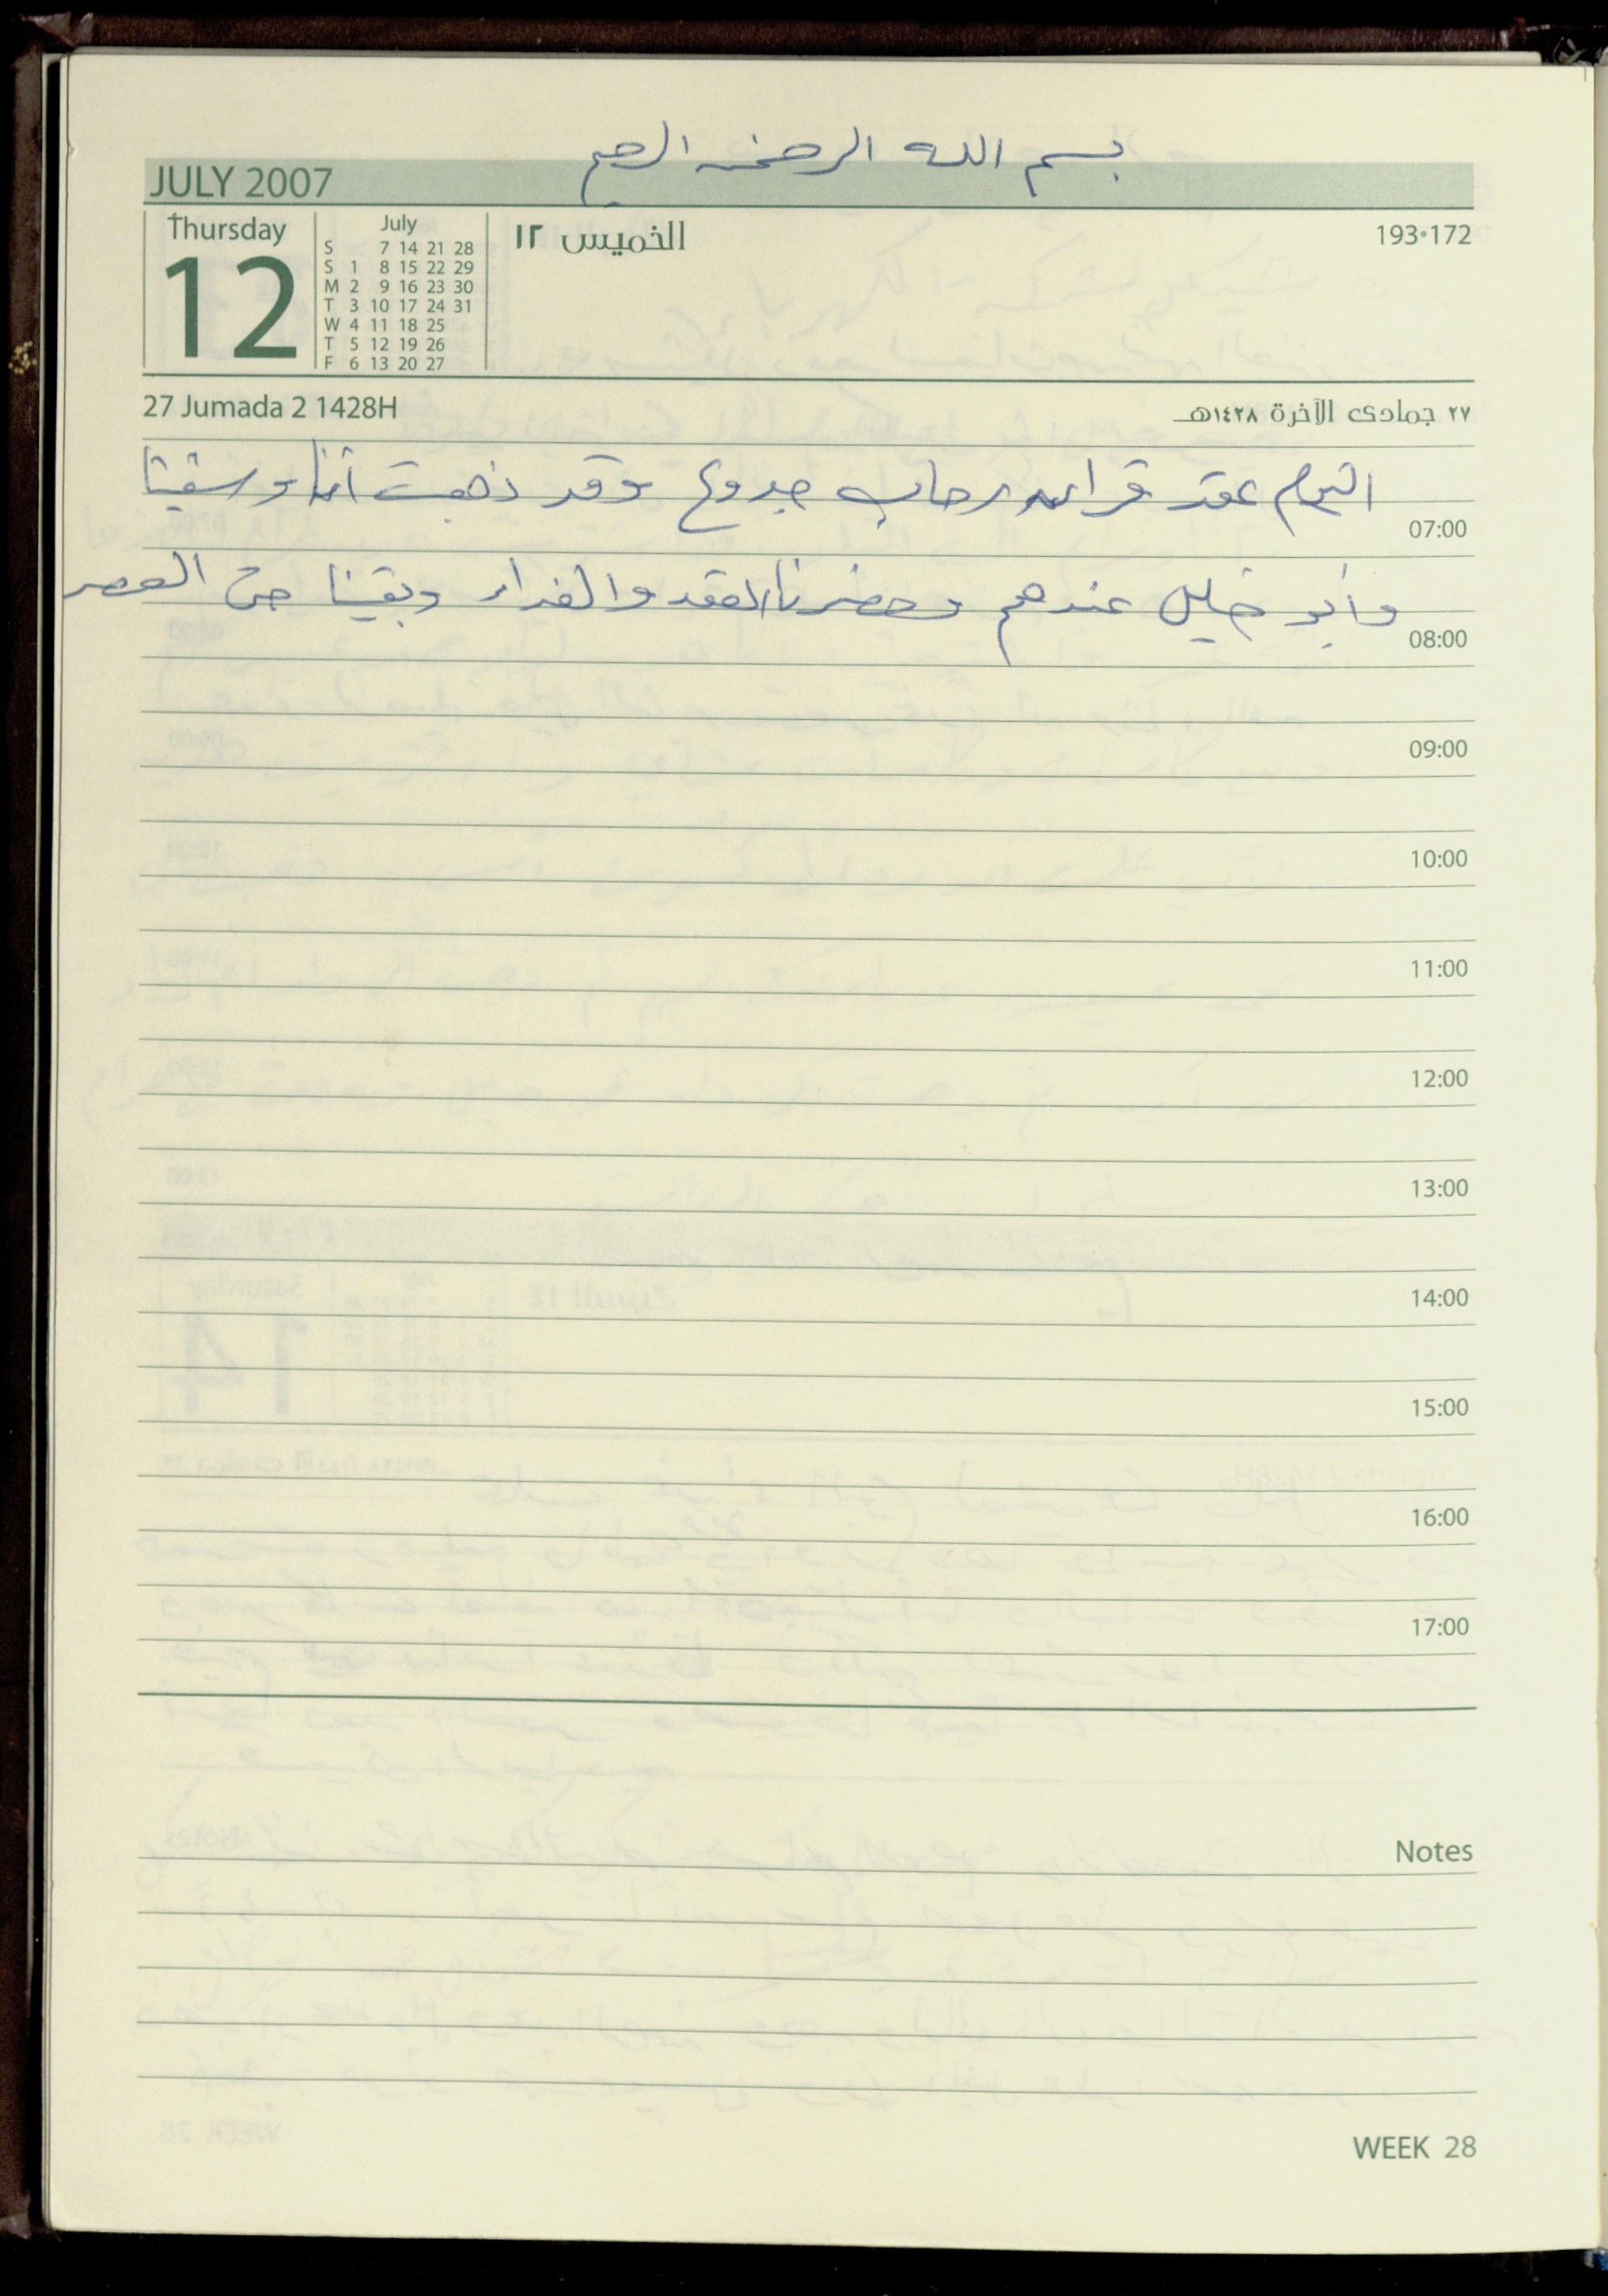 بسم الله الرحمن الرحيم
JULY 2007
Thursday
12
July
S 7 14 21 28
S 1 8 15 22 29
M 2 9 16 23 30
T 3 10 17 24 31
W 4 11 18 25
T 5 12 19 26
F 6 13 20 27
الخميس ١٢
193•172
27 Jumada 2 1428H
٢٧ جمادى الآخرة ١٤٢٨هـ
اليوم عقد قران رحاب جدوع وقد ذهبت أنا و
07:00
وأبو خليل عندهم وحضرنا العقد والغداء وبقينا حتى العصر
08:00
09:00
10:00
11:00
12:00
13:00
14:00
15:00
16:00
17:00
Notes
WEEK 28